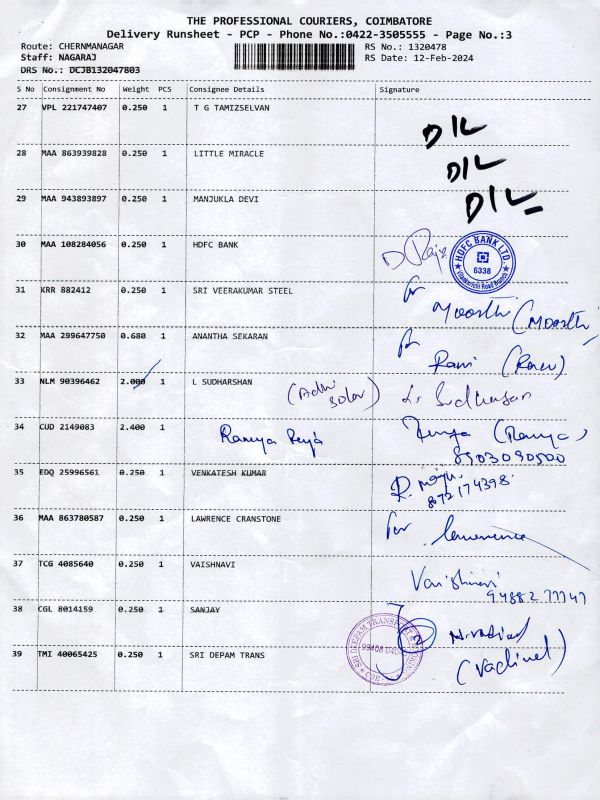 THE PROFESSIONAL COURIERS, COIMBATORE
Delivery Runsheet - PCP - Phone No.:0422-3505555 - Page No.:3
Route: CHERNMANAGAR RS No.: 1320478
Staff: NAGARAJ RS Date: 12-Feb-2024
DRS No.: DCJB132047803
S No Consignment No Weight PCS Consignee Details Signature
27 VPL 221747407 0.250 1 T G TAMIZSELVAN D/L
28 MAA 863939828 0.250 1 LITTLE MIRACLE D/L
29 MAA 943893897 0.250 1 MANJUKLA DEVI D/L
30 MAA 108284056 0.250 1 HDFC BANK HDFC BANK LTD. 6338
31 KRR 882412 0.250 1 SRI VEERAKUMAR STEEL for Moorthi (Moorthi)
32 MAA 299647750 0.680 1 ANANTHA SEKARAN for Ravi
33 NLM 90396462 2.000 1 L SUDHARSHAN (Adhi Solar) L. Sudharsan
34 CUD 2149083 2.400 1 Ramya (Ramya)
8903090500
35 EDQ 25996561 0.250 1 VENKATESH KUMAR
36 MAA 863780587 0.250 1 LAWRENCE CRANSTONE for Lawrence
37 TCG 4085640 0.250 1 VAISHNAVI Vaishnavi
38 CGL 8014159 0.250 1 SANJAY
39 TMI 40065425 0.250 1 SRI DEPAM TRANS SRI DEEPAM TRANSPORT (Vadivel)